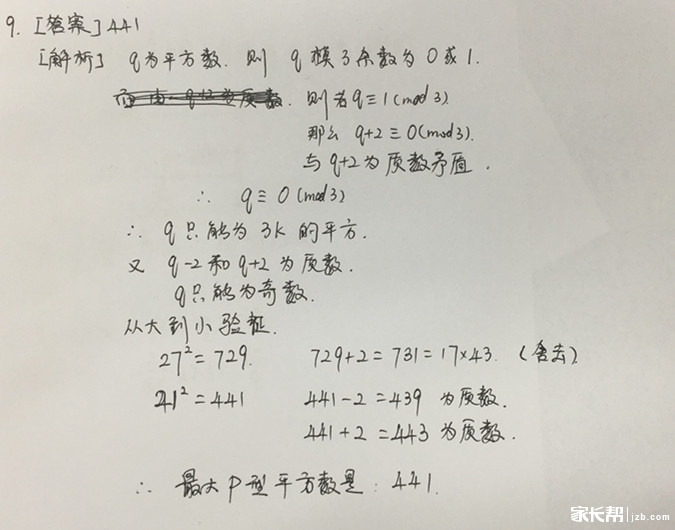 9. [答案] 441
[解析] q为平方数. 则 q 模 3 余数为 0 或 1.
则若 q≡1(mod 3)
那么 q+2≡0(mod 3).
与 q+2 为质数矛盾.
∴ q≡0(mod 3)
∴ q 只能为 3K 的平方.
又 q-2 和 q+2 为质数.
q 只能为奇数.
从大到小验证.
27²=729. 729+2=731=17×43. (舍去)
21²=441 441-2=439 为质数.
441+2=443 为质数.
∴ 最大 P 型平方数是: 441.
家长帮 jzb.com